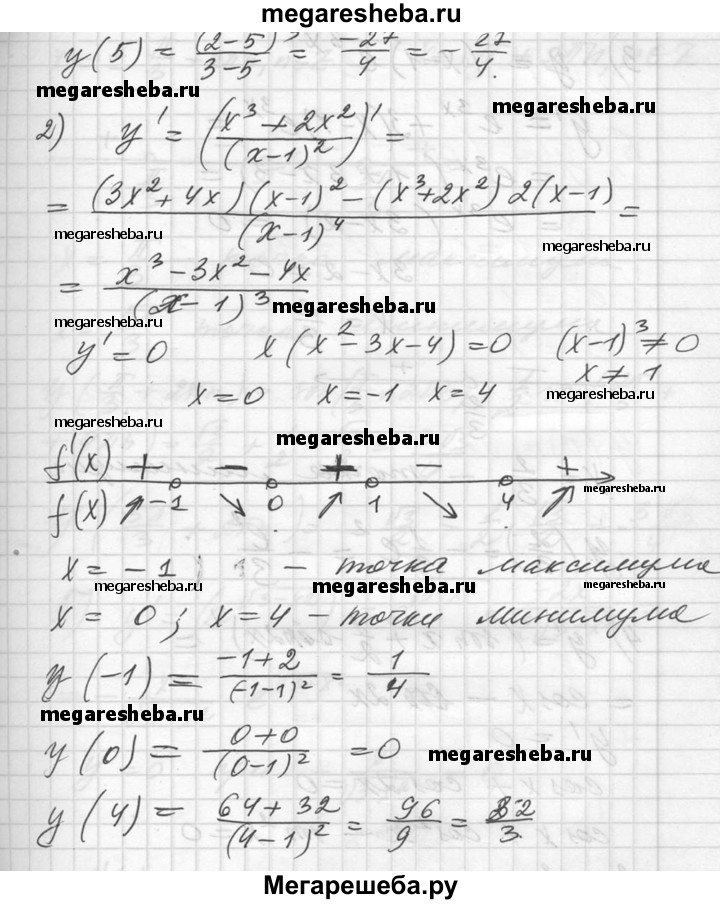 megaresheba.ru
y(5) = (2-5)³/3-5 = -27/4 = -27/4.
megaresheba.ru
2) y' = (x³+2x²/(x-1)²)' =
= (3x²+4x)(x-1)²-(x³+2x²)2(x-1)/(x-1)⁴ =
megaresheba.ru megaresheba.ru
= x³-3x²-4x/(x-1)³ megaresheba.ru
megaresheba.ru
y'=0 x(x²-3x-4)=0 (x-1)³≠0
x≠1
x=0 x=-1 x=4
megaresheba.ru megaresheba.ru
f'(x) + - + - +
megaresheba.ru
f(x) ↗ -1 ↘ 0 ↗ 1 ↘ 4 ↗
x = -1 ; - точка максимума
megaresheba.ru megaresheba.ru megaresheba.ru
x = 0; x=4 - точки минимума
y(-1) = -1+2/(-1-1)² = 1/4
megaresheba.ru
y(0) = 0+0/(0-1)² = 0 megaresheba.ru
y(4) = 64+32/(4-1)² = 96/9 = 32/3.
Мегарешеба.ру